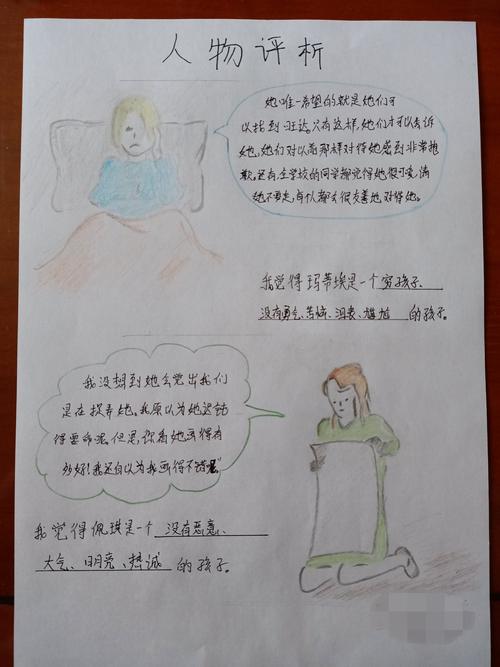 人物评析
她唯一希望的就是她们可
以找到旺达,只有这样,她们才可以告诉
她,她们对以前那样对待她感到非常抱
歉。还有,全学校的同学都觉得她很可爱,请
她不要走,每个人都会很友善地对待她。
我觉得玛蒂埃是一个穷孩子、
没有勇气、苦恼、沮丧、尴尬的孩子。
我没想到她会觉出我们
是在捉弄她。我原以为她还钻
得要命呢。但是,你看她画得有
多好!我还自以为我画得不错呢"
我觉得佩琪是一个没有恶意、
大气、明亮、热诚的孩子。